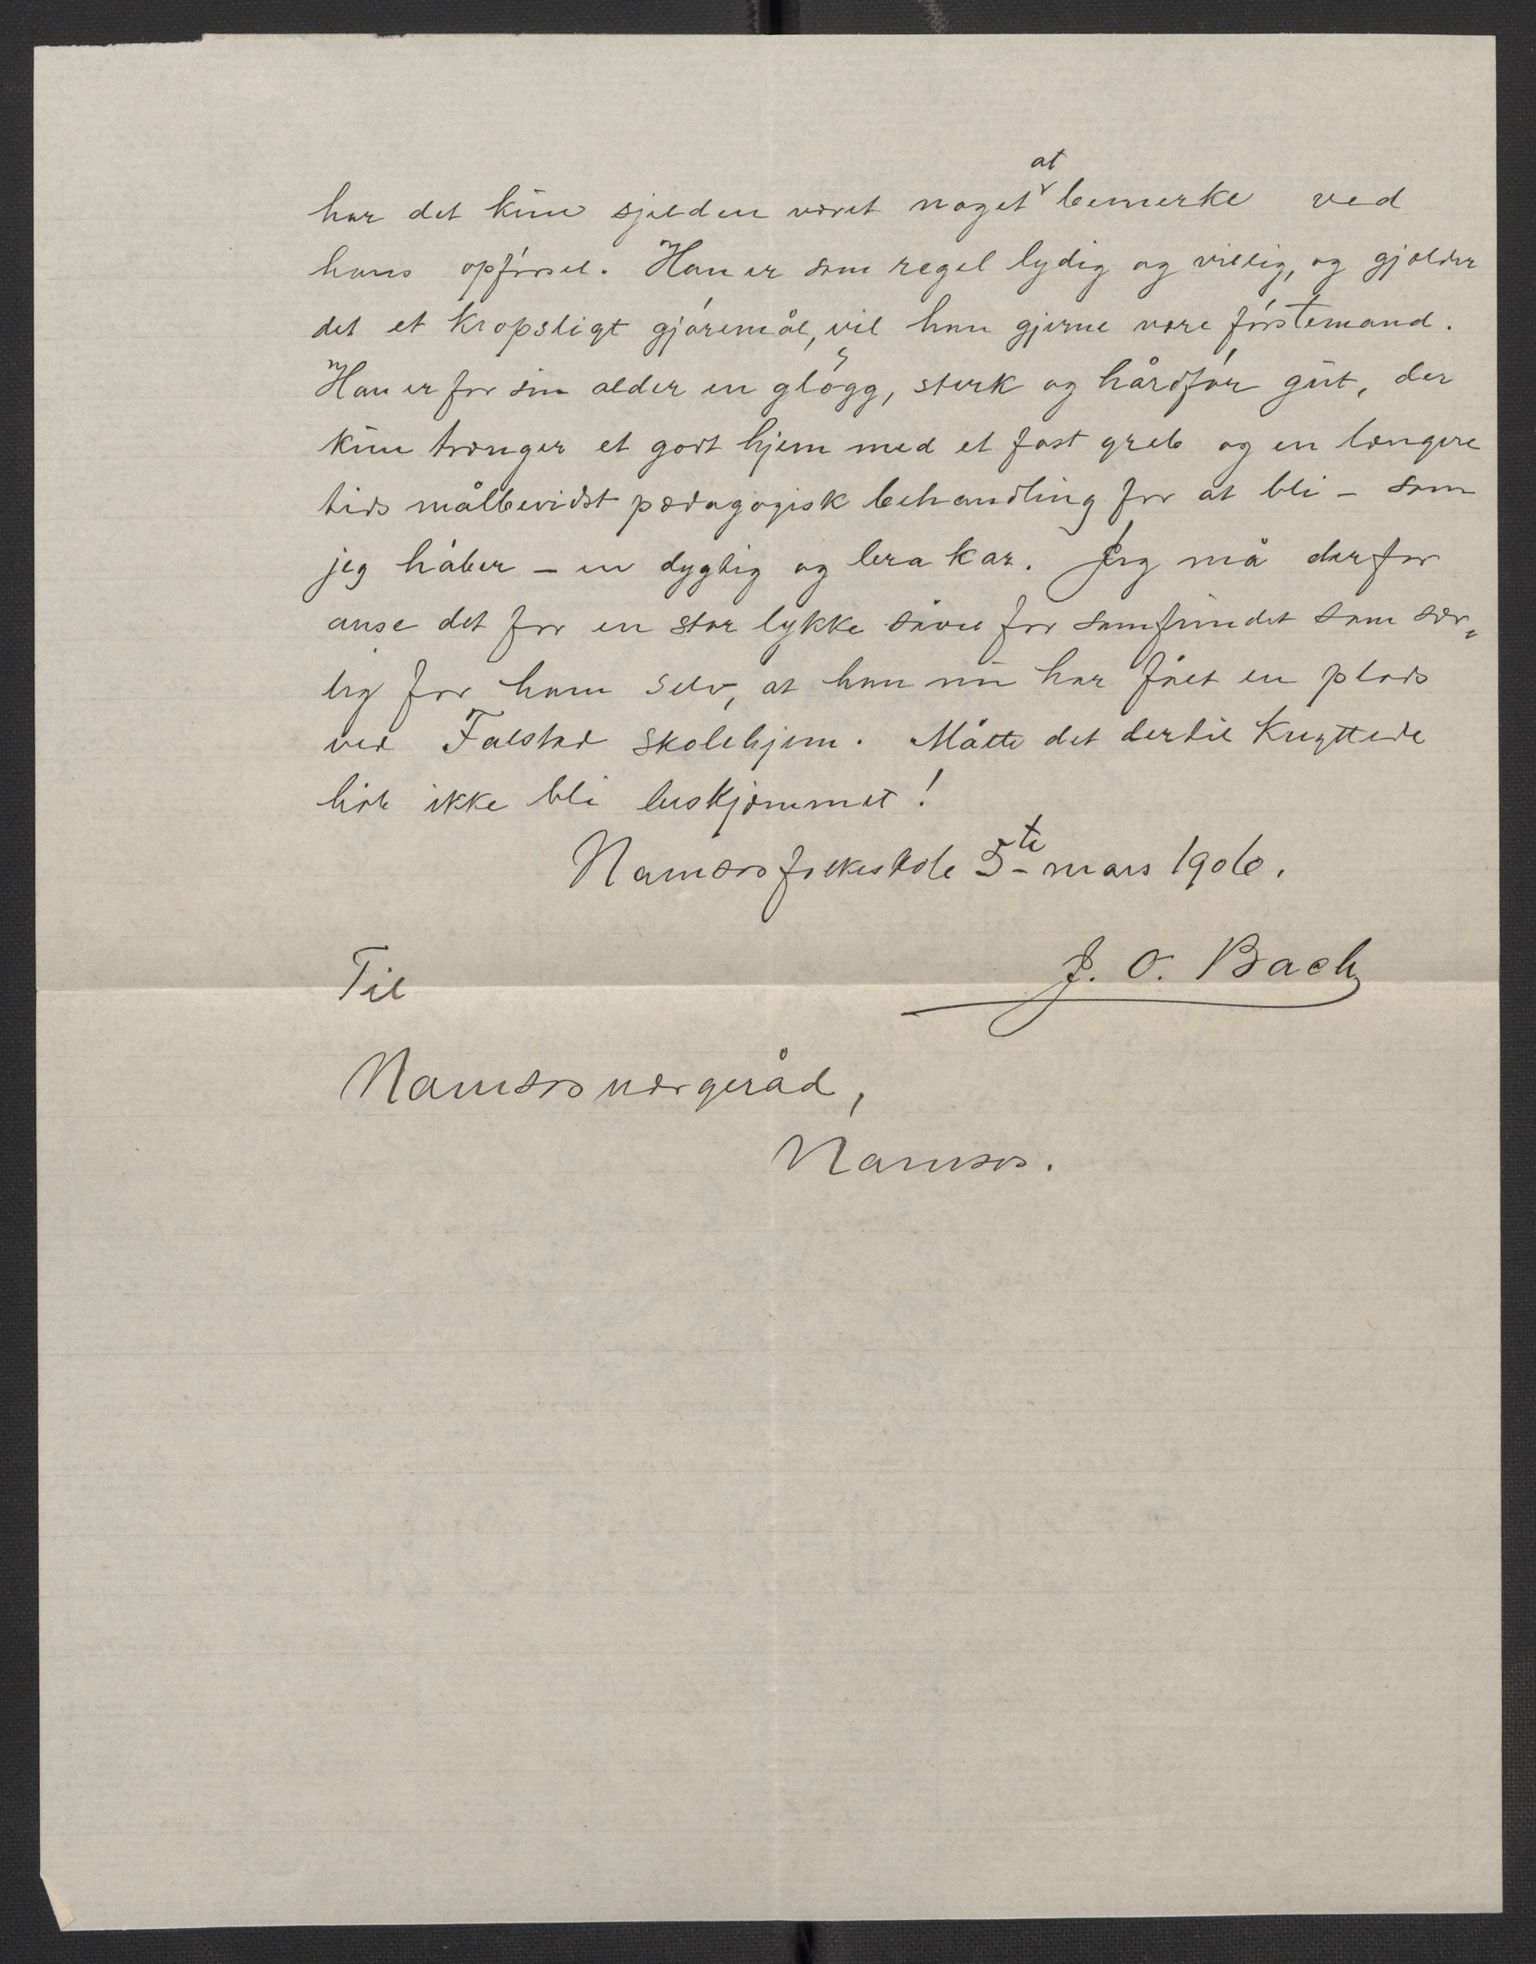 har det kun sjelden været noget at bemerke ved
hans opførsel. Han er som regel lydig og villig, og gjælder
det et kropsligt gjøremål, vil han gjerne være førstemand.
Han er for sin alder en gløgg, sterk og hårdfør gut, der
kun trænger et godt hjem med et fast greb og en længere
tids målbevidst pædagogisk behandling for at bli – som
jeg håber – en dygtig og bra kar. Jeg må derfor
anse det for en stor lykke såvel for samfundet som sær-
lig for ham selv, at han nu har fået en plads
ved Falstad skolehjem. Måtte det dertil knyttede
håb ikke bli beskjæmmet!
Namsos folkeskole 5te mars 1906.
J. O. Bach
Til
Namsos værgeråd,
Namsos.